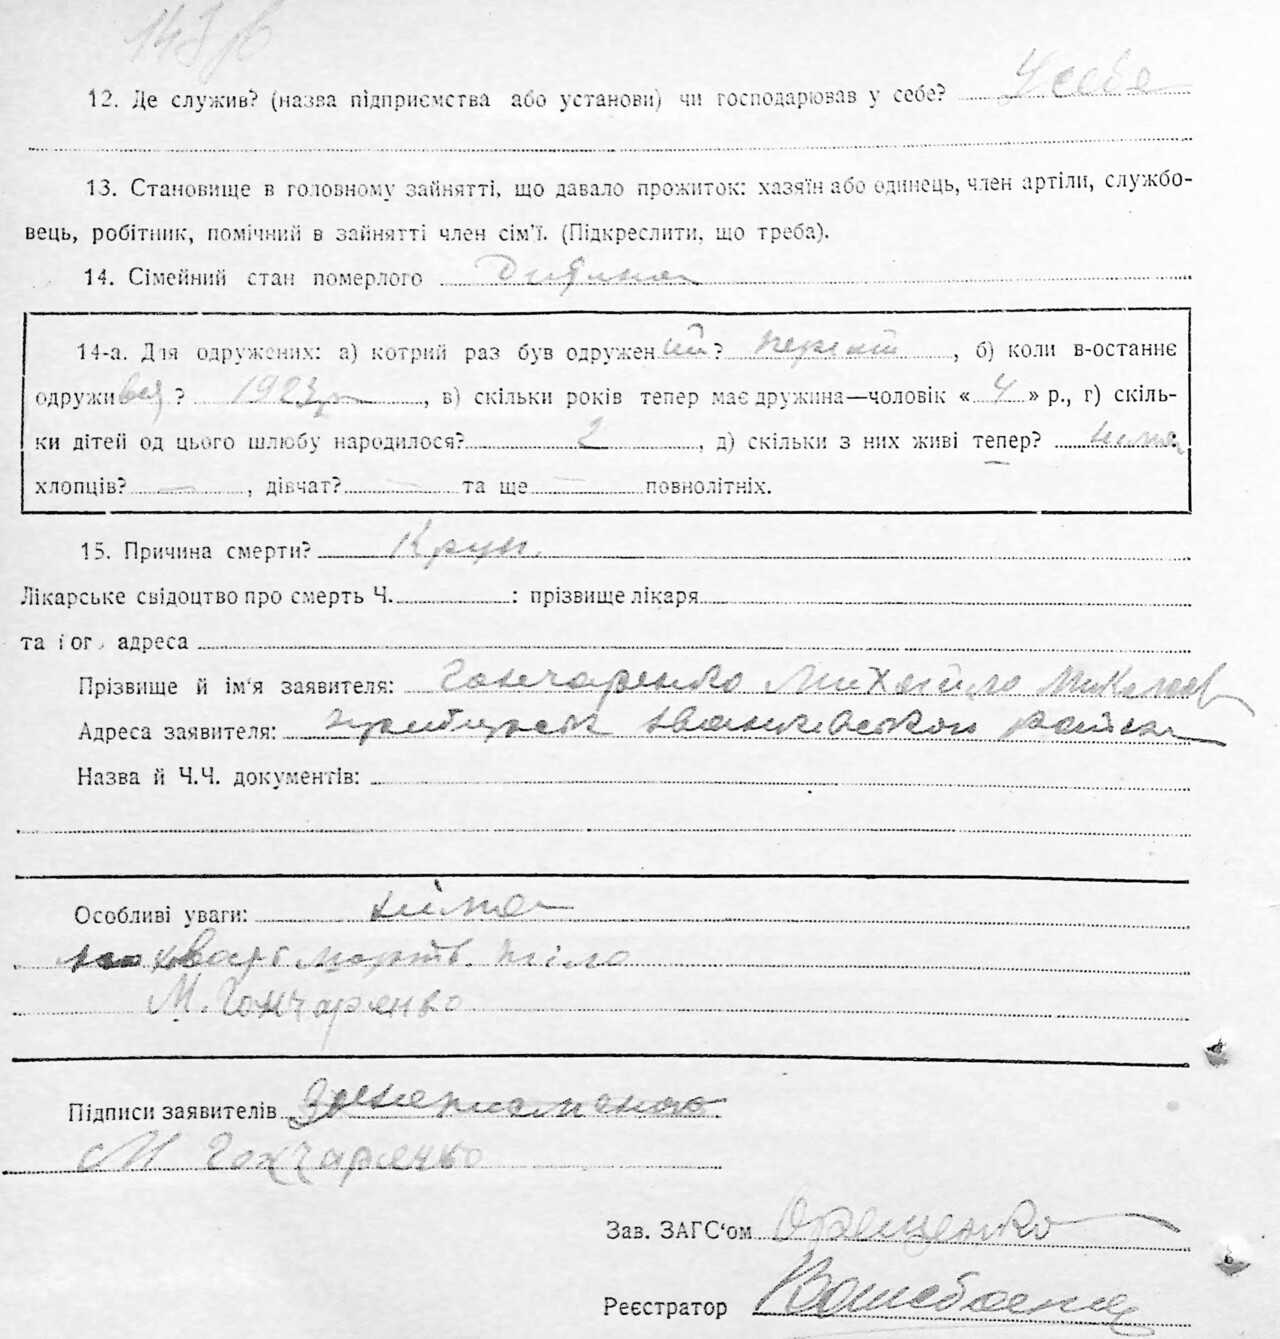 12. Де служив? (назва підприємства або установи) чи господарював у себе? У себе
13. Становище в головному зайнятті, що давало прожиток: хазяїн або одинець, член артіли, службо-
вець, робітник, помічний в зайнятті член сім'ї. (Підкреслити, що треба).
14. Сімейний стан померлого Дитина
14-а. Для одружених: а) котрий раз був одружений? перший, б) коли в-останнє
одружився? 1923 р, в) скільки років тепер має дружина—чоловік «4» р., г) скіль-
ки дітей од цього шлюбу народилося? 2, д) скільки з них живі тепер? нима
хлопців? —, дівчат? — та ще — повнолітніх.
15. Причина смерти? Круп.
Лікарське свідоцтво про смерть Ч. : прізвище лікаря
та його адреса
Прізвище й ім'я заявителя: Гончаренко Михайло Миколаев
Адреса заявителя: Іванківського району
Назва й Ч.Ч. документів:
Особливі уваги: нима
тіло
М. Гончаренко
Підписи заявителів
М Гончаренко
Зав. ЗАГС'ом
Реєстратор